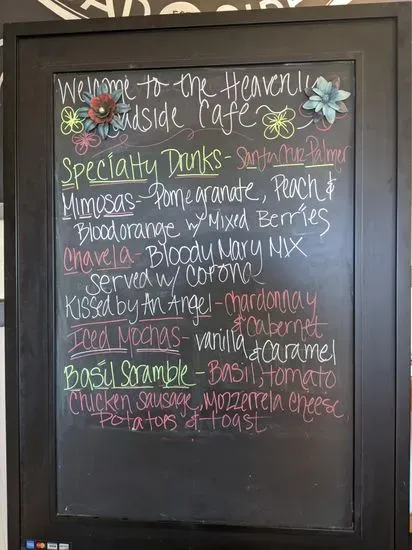 Welcome to the Heavenly
Cafe
Specialty Drinks - Santa Cruz Palmer
Mimosas - Pomegranate, Peach &
Bloodorange w/ Mixed Berries
Chavela - Bloody Mary Mix
served w/ Corona
Kissed by An Angel - Chardonnay
& Cabernet
Iced Mochas - vanilla & Caramel
Basil Scramble - Basil, tomato
Chicken sausage, Mozzerrela cheese
Potatoes & toast